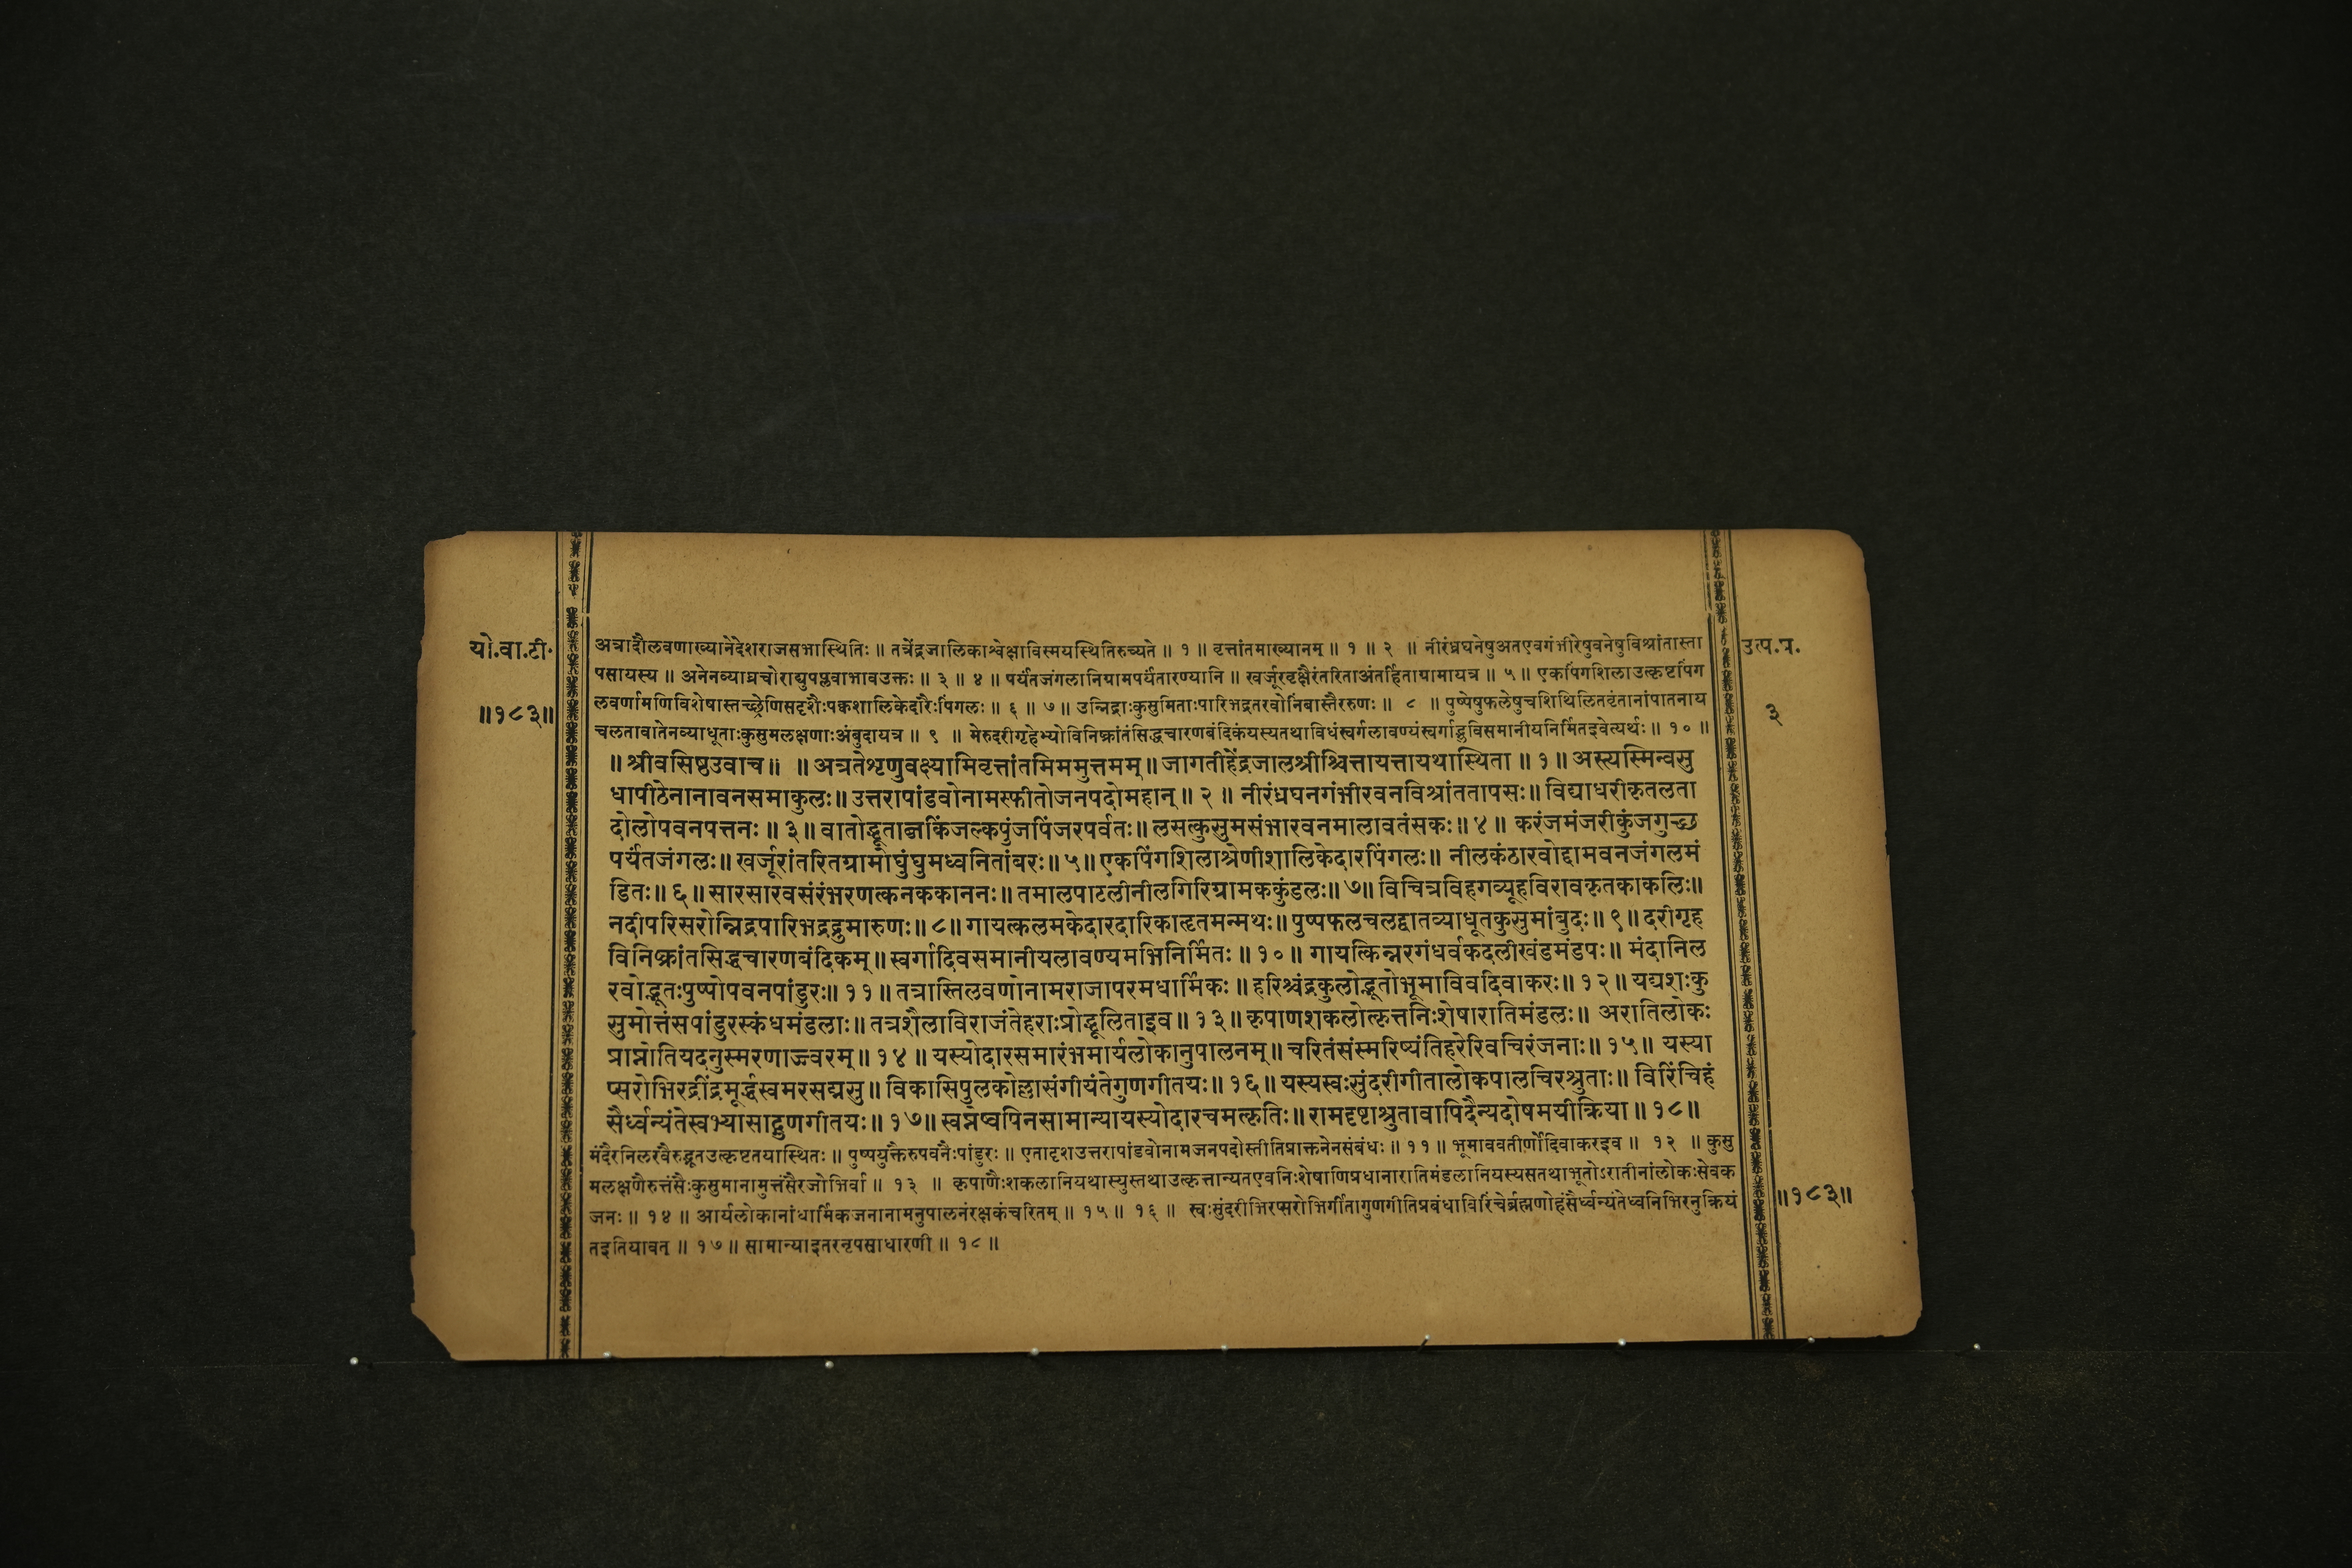 यो.वा.टी·
॥१८३॥
उत्प.प्र.
३
अत्रादौलवणाख्यानेदेशराजसभास्थितिः ॥ तत्रेंद्रजालिकाश्वेक्षाविस्मयस्थितिरुच्यते ॥ १ ॥ वृत्तांतमाख्यानम् ॥ १ ॥ २ ॥ नीरंध्रघनेषुअतएवगंभीरेषुवनेषुविश्रांतास्ता
पसायस्य ॥ अनेनव्याघ्रचोराद्युपप्लवाभावउक्तः ॥ ३ ॥ ४ ॥ पर्यंतजंगलानियामपर्यंतारण्यानि ॥ खर्जूरवृक्षैरंतरिताअंतर्हिताग्रामायत्र ॥ ५ ॥ एकपिंगशिलाउत्कृष्टपिंग
लवर्णामणिविशेषास्तच्छ्रेणिसदृशैःपक्वशालिकेदारैःपिंगलः ॥ ६ ॥ ७ ॥ उन्निद्राःकुसुमिताःपारिभद्रतरवोनिंबास्तैररुणः ॥ ८ ॥ पुष्पेषुफलेषुचशिथिलितवृंतानांपातनाय
चलतावातेनव्याधूताःकुसुमलक्षणाःअंबुदायत्र ॥ ९ ॥ मेरुदरीगृहेभ्योविनिष्क्रांतंसिद्धचारणबंदिकंयस्यतथाविधंस्वर्गलावण्यंस्वर्गाद्भुविसमानीयनिर्मितइवेत्यर्थः ॥ १० ॥
॥ श्रीवसिष्ठउवाच ॥ ॥ अत्रतेशृणुवक्ष्यामिवृत्तांतमिममुत्तमम् ॥ जागतीहेंद्रजालश्रीश्चित्तायत्तायथास्थिता ॥ १ ॥ अस्त्यस्मिन्वसु
धापीठेनानावनसमाकुलः ॥ उत्तरापांडवोनामस्फीतोजनपदोमहान् ॥ २ ॥ नीरंध्रघनगंभीरवनविश्रांततापसः ॥ विद्याधरीकृतलता
दोलोपवनपत्तनः ॥ ३ ॥ वातोद्धूताब्जकिंजल्कपुंजपिंजरपर्वतः ॥ लसत्कुसुमसंभारवनमालावतंसकः ॥ ४ ॥ करंजमंजरीकुंजगुच्छ
पर्यंतजंगलः ॥ खर्जूरांतरितग्रामोघुंघुमध्वनितांबरः ॥ ५ ॥ एकपिंगशिलाश्रेणीशालिकेदारपिंगलः ॥ नीलकंठारवोद्दामवनजंगलमं
डितः ॥ ६ ॥ सारसारवसंरंभरणत्कनककाननः ॥ तमालपाटलीनीलगिरिग्रामककुंडलः ॥ ७ ॥ विचित्रविहगव्यूहविरावकृतकाकलिः ॥
नदीपरिसरोन्निद्रपारिभद्रद्रुमारुणः ॥ ८ ॥ गायत्कलमकेदारदारिकाहृतमन्मथः ॥ पुष्पफलचलद्वातव्याधूतकुसुमांबुदः ॥ ९ ॥ दरीगृह
विनिष्क्रांतसिद्धचारणबंदिकम् ॥ स्वर्गादिवसमानीयलावण्यमभिनिर्मितः ॥ १० ॥ गायत्किन्नरगंधर्वकदलीखंडमंडपः ॥ मंदानिल
रवोद्भूतःपुष्पोपवनपांडुरः ॥ ११ ॥ तत्रास्तिलवणोनामराजापरमधार्मिकः ॥ हरिश्चंद्रकुलोद्भूतोभूमाविवदिवाकरः ॥ १२ ॥ यद्यशःकु
सुमोत्तंसपांडुरस्कंधमंडलाः ॥ तत्रशैलाविराजंतेहराःप्रोद्धूलिताइव ॥ १३ ॥ कृपाणशकलोत्कृत्तनिःशेषारातिमंडलः ॥ अरातिलोकः
प्राप्नोतियदनुस्मरणाज्ज्वरम् ॥ १४ ॥ यस्योदारसमारंभमार्यलोकानुपालनम् ॥ चरितंसंस्मरिष्यंतिहरेरिवचिरंजनाः ॥ १५ ॥ यस्या
प्सरोभिरद्रींद्रमूर्द्धस्वमरसद्मसु ॥ विकासिपुलकोल्लासंगीयंतेगुणगीतयः ॥ १६ ॥ यस्यस्वःसुंदरीगीतालोकपालचिरश्रुताः ॥ विरिंचिहं
सैर्ध्वन्यंतेस्वभ्यासाद्गुणगीतयः ॥ १७ ॥ स्वप्नेष्वपिनसामान्यायस्योदारचमत्कृतिः ॥ रामदृष्टाश्रुतावापिदैन्यदोषमयीक्रिया ॥ १८ ॥
मंदैरनिलरवैरुद्भूतउत्कृष्टतयास्थितः ॥ पुष्पयुक्तैरुपवनैःपांडुरः ॥ एतादृशउत्तरापांडवोनामजनपदोस्तीतिप्राक्तनेनसंबंधः ॥ ११ ॥ भूमाववतीर्णोदिवाकरइव ॥ १२ ॥ कुसु
मलक्षणैरुत्तंसैःकुसुमानामुत्तंसैरजोभिर्वा ॥ १३ ॥ कृपाणैःशकलानियथास्युस्तथाउत्कृत्तान्यतएवनिःशेषाणिप्रधानारातिमंडलानियस्यसतथाभूतोऽरातीनांलोकःसेवक
जनः ॥ १४ ॥ आर्यलोकानांधार्मिकजनानामनुपालनंरक्षकंचरितम् ॥ १५ ॥ १६ ॥ स्वःसुंदरीभिरप्सरोभिर्गीतागुणगीतिप्रबंधाविरिंचेर्ब्रह्मणोहंसैर्ध्वन्यंतेध्वनिभिरनुक्रियं
तइतियावत् ॥ १७ ॥ सामान्याइतरनृपसाधारणी ॥ १८ ॥
॥१८३॥